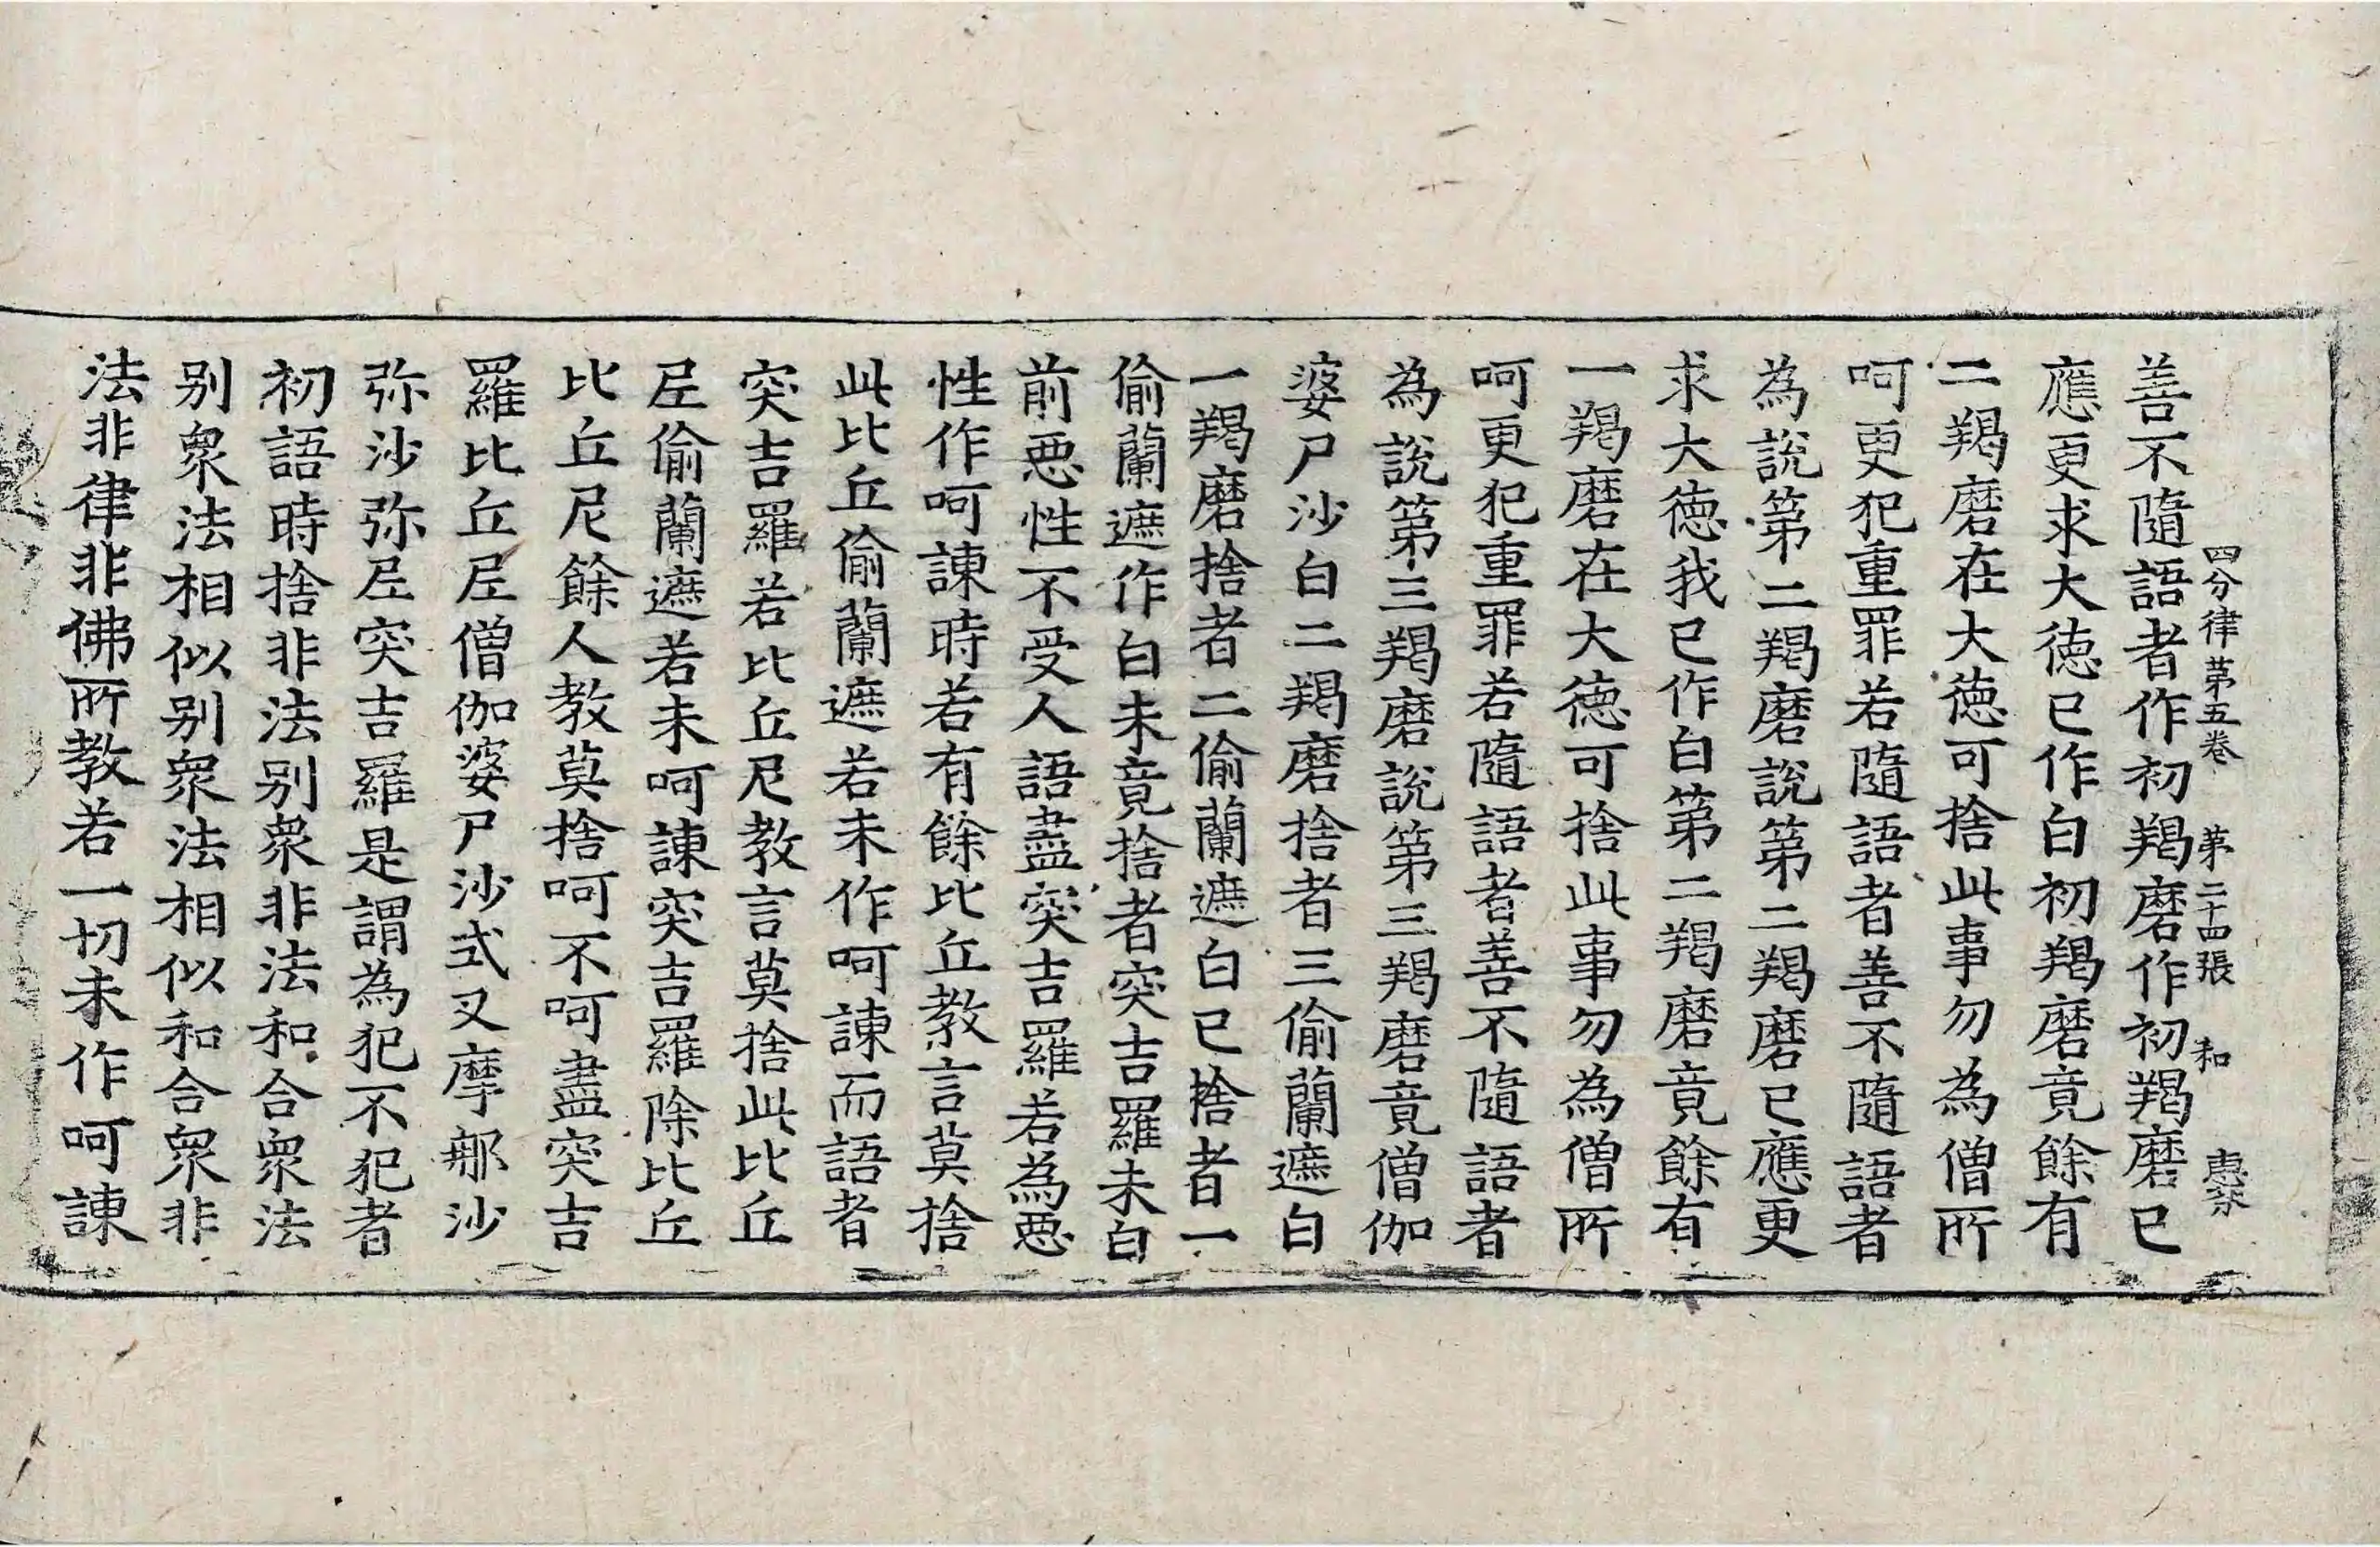 四分律第五卷 第二十四張 和
善不隨語者作初羯磨作初羯磨已
應更求大德已作白初羯磨竟餘有
二羯磨在大德可捨此事勿為僧所
呵更犯重罪若隨語者善不隨語者
為說第二羯磨說第二羯磨已應更
求大德我已作白第二羯磨竟餘有
一羯磨在大德可捨此事勿為僧所
呵更犯重罪若隨語者善不隨語者
為說第三羯磨說第三羯磨竟僧伽
婆尸沙白二羯磨捨者三偷蘭遮白
一羯磨捨者二偷蘭遮白已捨者一
偷蘭遮作白未竟捨者突吉羅未白
前惡性不受人語盡突吉羅若為惡
性作呵諫時若有餘比丘教言莫捨
此比丘偷蘭遮若未作呵諫而語者
突吉羅若比丘尼教言莫捨此比丘
尼偷蘭遮若未呵諫突吉羅除比丘
比丘尼餘人教莫捨呵不呵盡突吉
羅比丘尼僧伽婆尸沙式叉摩那沙
弥沙弥尼突吉羅是謂為犯不犯者
初語時捨非法别眾非法和合眾法
别眾法相似别眾法相似和合眾非
法非律非佛所教若一切未作呵諫